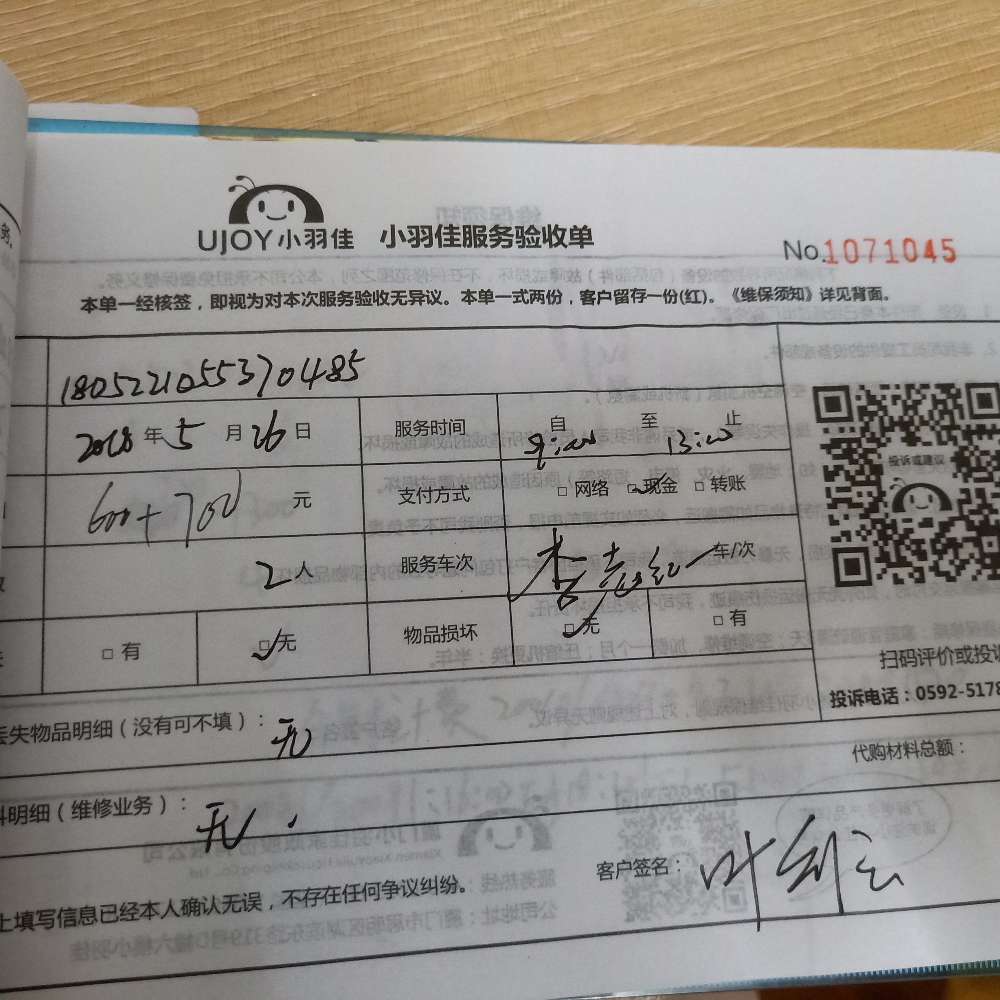 UJOY小羽佳 小羽佳服务验收单
No.1071045
本单一经核签，即视为对本次服务验收无异议。本单一式两份，客户留存一份(红)。《维保须知》详见背面。
180522105537 0485
2018年5月26日 服务时间 自9:00至13:00止
600+700元 支付方式 □网络 ☑现金 □转账
2人 服务车次 车/次
□有 ☑无 物品损坏 ☑无 □有
投诉或建议
扫码评价或投
投诉电话：0592-5178
丢失物品明细（没有可不填）：无
代购材料总额：
料明细（维修业务）：无.
客户签名：叶
上填写信息已经本人确认无误，不存在任何争议纠纷。